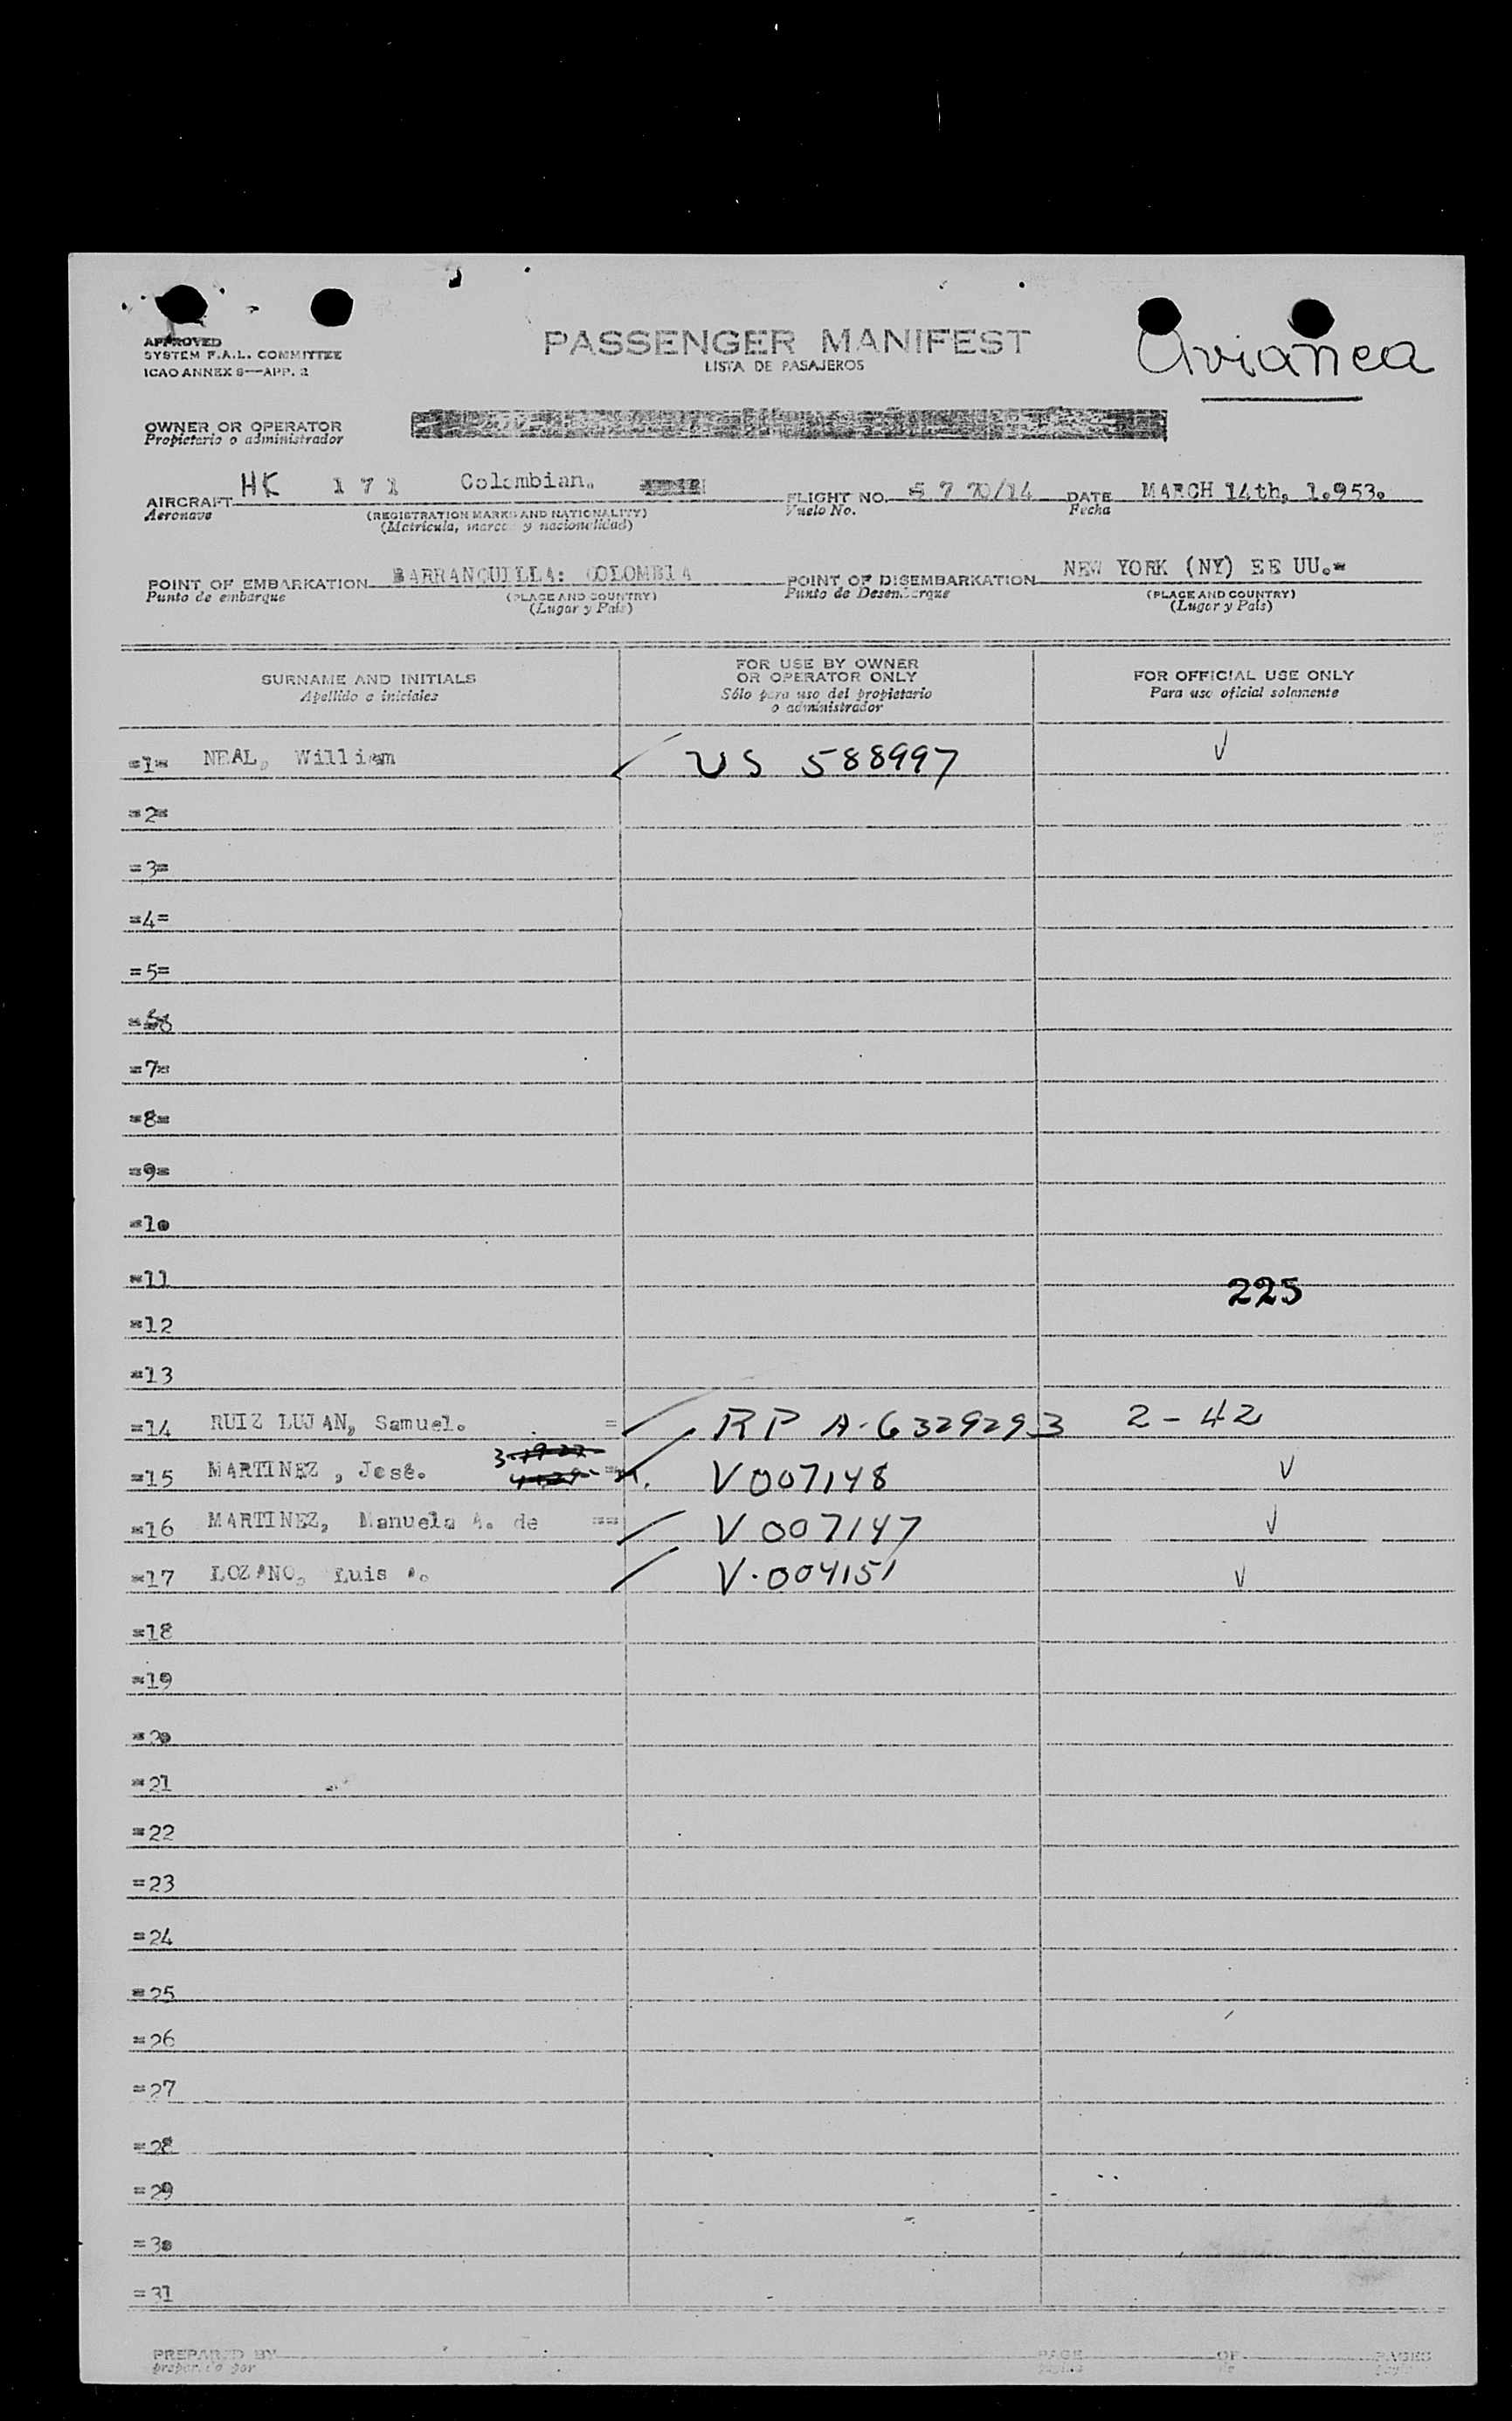 APPROVED
SYSTEM F.A.L. COMMITTEE
ICAO ANNEX 9—APP. 2
PASSENGER MANIFEST
LISTA DE PASAJEROS
Avianca
OWNER OR OPERATOR
Propietario o administrador
AIRCRAFT HK 171 Colombian. FLIGHT NO. 770/14 DATE MARCH 14th, 1.953.
Aeronave (REGISTRATION MARKS AND NATIONALITY) Vuelo No. Fecha
(Matrícula, marcas y nacionalidad)
POINT OF EMBARKATION BARRANQUILLA: COLOMBIA POINT OF DISEMBARKATION NEW YORK (NY) EE UU.=
Punto de embarque (PLACE AND COUNTRY) Punto de Desembarque (PLACE AND COUNTRY)
(Lugar y País) (Lugar y País)
SURNAME AND INITIALS FOR USE BY OWNER OR OPERATOR ONLY FOR OFFICIAL USE ONLY
Apellido e iniciales Sólo para uso del propietario o administrador Para uso oficial solamente
=1= NEAL, William US 588997 ✓
=2=
=3=
=4=
=5=
=7=
=8=
=9=
=10
=11
225
=12
=13
=14 RUIZ LUJAN, Samuel. = RP A-6329293 2-42
=15 MARTINEZ , José. V007148 ✓
=16 MARTINEZ, Manuela A. de == V 007147 ✓
=17 LOZANO, Luis A. V.004151 ✓
=18
=19
=20
=21
=22
=23
=24
=25
=26
=27
=28
=29
=30
=31
PREPARED BY PAGE OF PAGES
preparado por